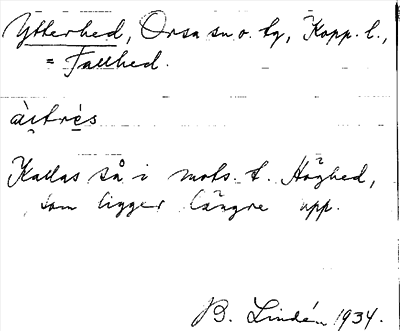 Ytterhed, Orsa sn o. tg, Kopp. l.,
= Fallhed.
àitrẹs
Kallas så i mots. t. Höghed,
som ligger längre upp.
B. Lindén 1934.